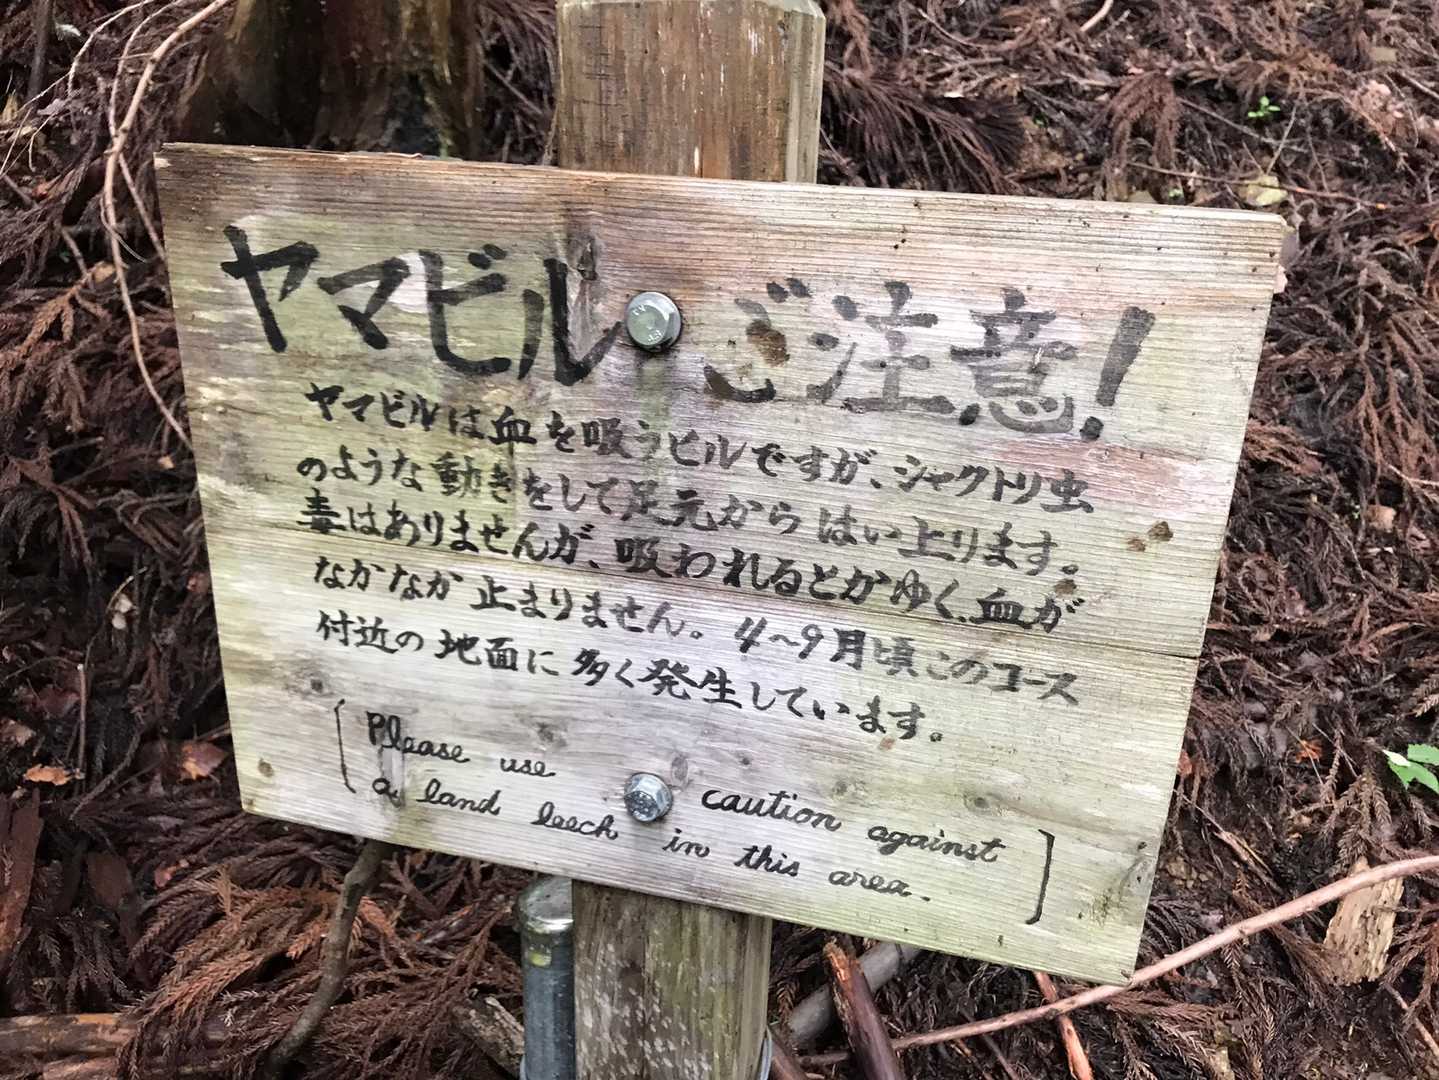 ヤマビルご注意!
ヤマビルは血を吸うビルですが、シャクトリ虫
のような動きをして足元からはい上ります。
毒はありませんが、吸われるとかゆく、血が
なかなか止まりません。4〜9月頃このコース
付近の地面に多く発生しています。
[Please use caution against
a land leech in this area.]